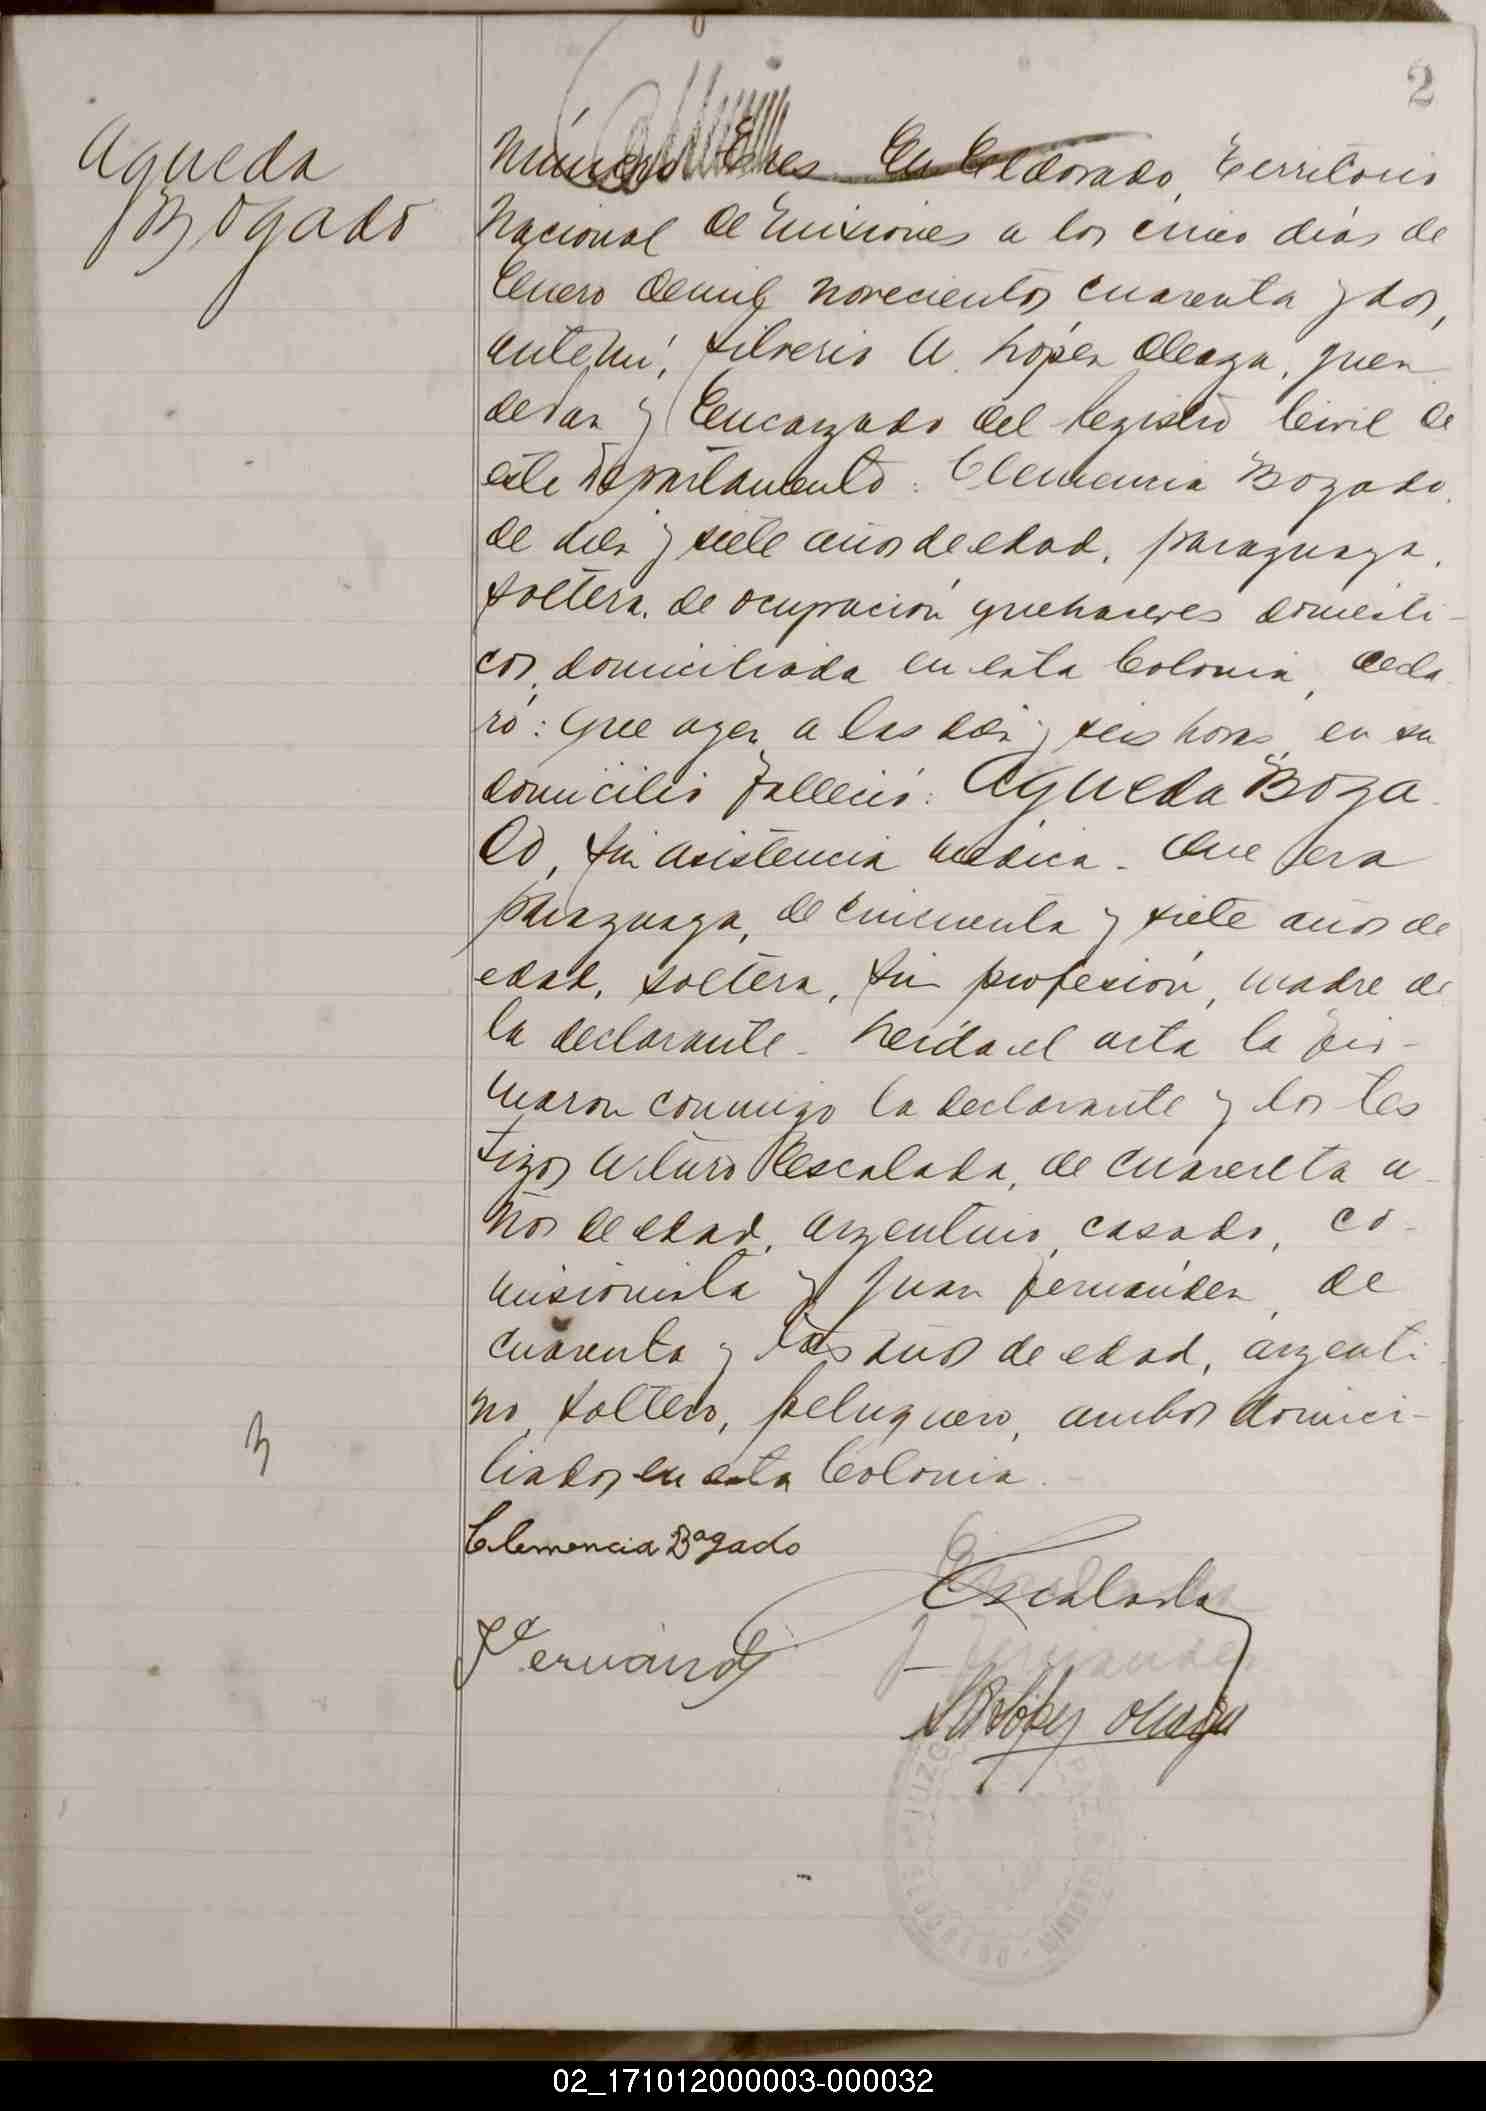 2
Agueda
Bogado
Número Tres. En Eldorado, Territorio
Nacional de Misiones a los cinco días de
Enero de mil novecientos cuarenta y dos,
ante mí, Silverio A. López Oleaga, Juez
de Paz y Encargado del Registro Civil de
este Departamento: Clemencia Bogado,
de diez y siete años de edad, paraguaya,
soltera, de ocupación quehaceres domésti-
cos, domiciliada en esta Colonia, decla-
ró: Que ayer a las diez y seis horas en su
domicilio falleció: Agueda Boga-
do, sin asistencia médica. Que era
paraguaya, de cincuenta y siete años de
edad, soltera, sin profesión, madre de
la declarante. Leída el acta la fir-
maron conmigo la declarante y los tes
tigos Arturo Escalada, de cuarenta a-
ños de edad, argentino, casado, co-
misionista y Juan Fernández, de
cuarenta y tres años de edad, argenti-
no, soltero, peluquero, ambos domici-
liados en esta Colonia.
Clemencia Bogado
Escalada
J Fernández
S A López Oleaga
JUZG PAZ
ELDORADO - MISIONES
02_171012000003-000032